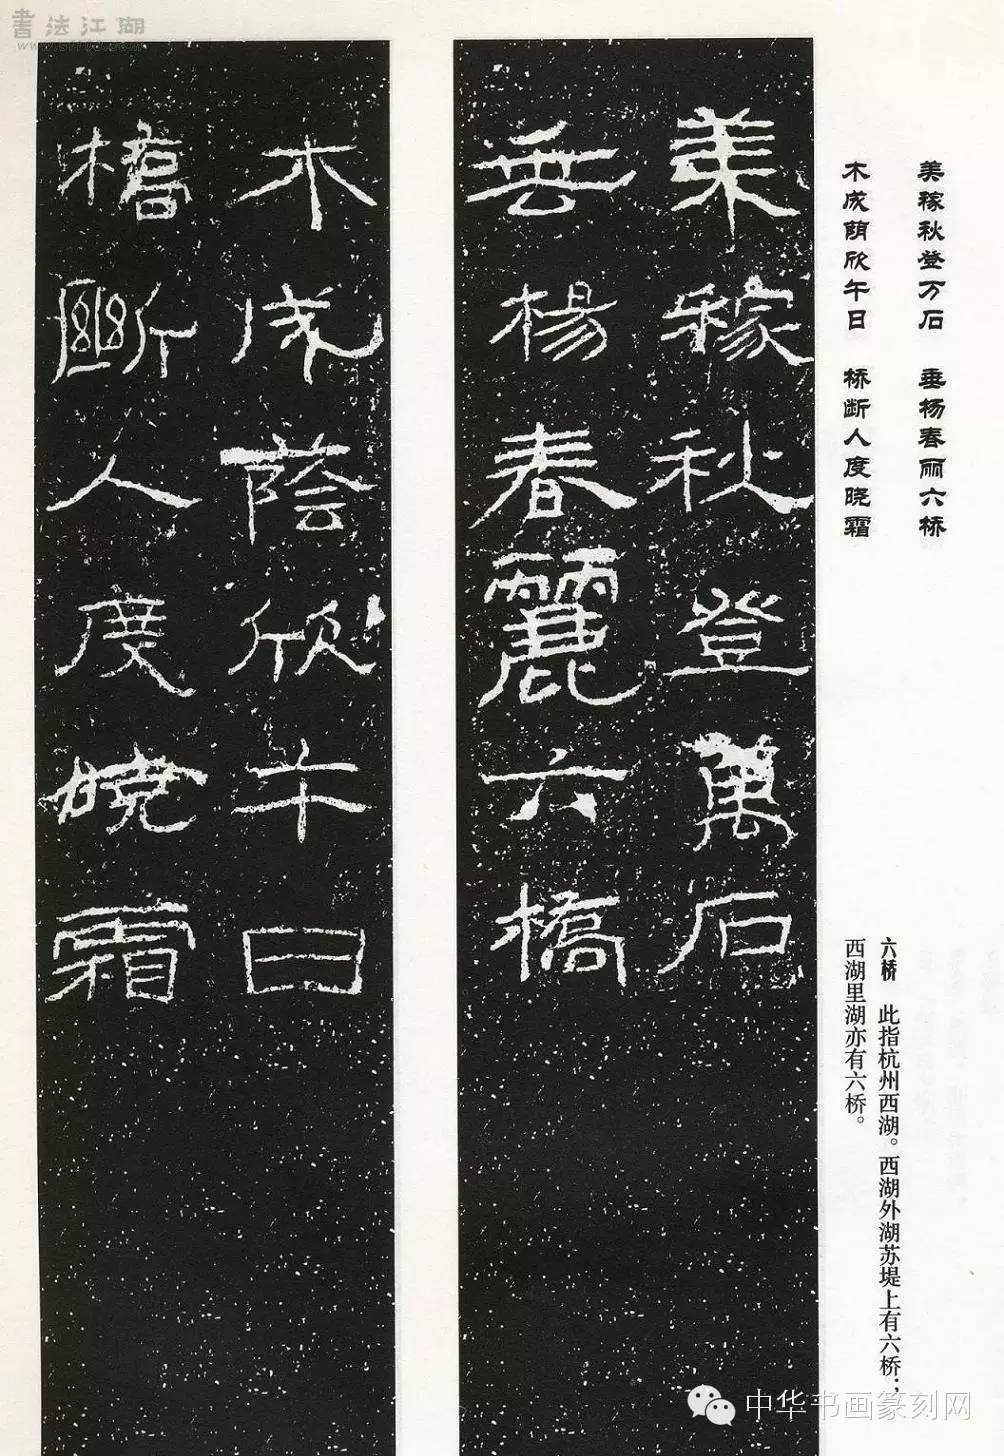 書法江湖
美稼秋登万石　垂杨春丽六桥
木成荫欣午日　桥断人度晓霜
美稼秋登萬石
垂楊春麗六橋
木成蔭欣午日
橋斷人度曉霜
六桥　此指杭州西湖。西湖外湖苏堤上有六桥；
西湖里湖亦有六桥。
中华书画篆刻网